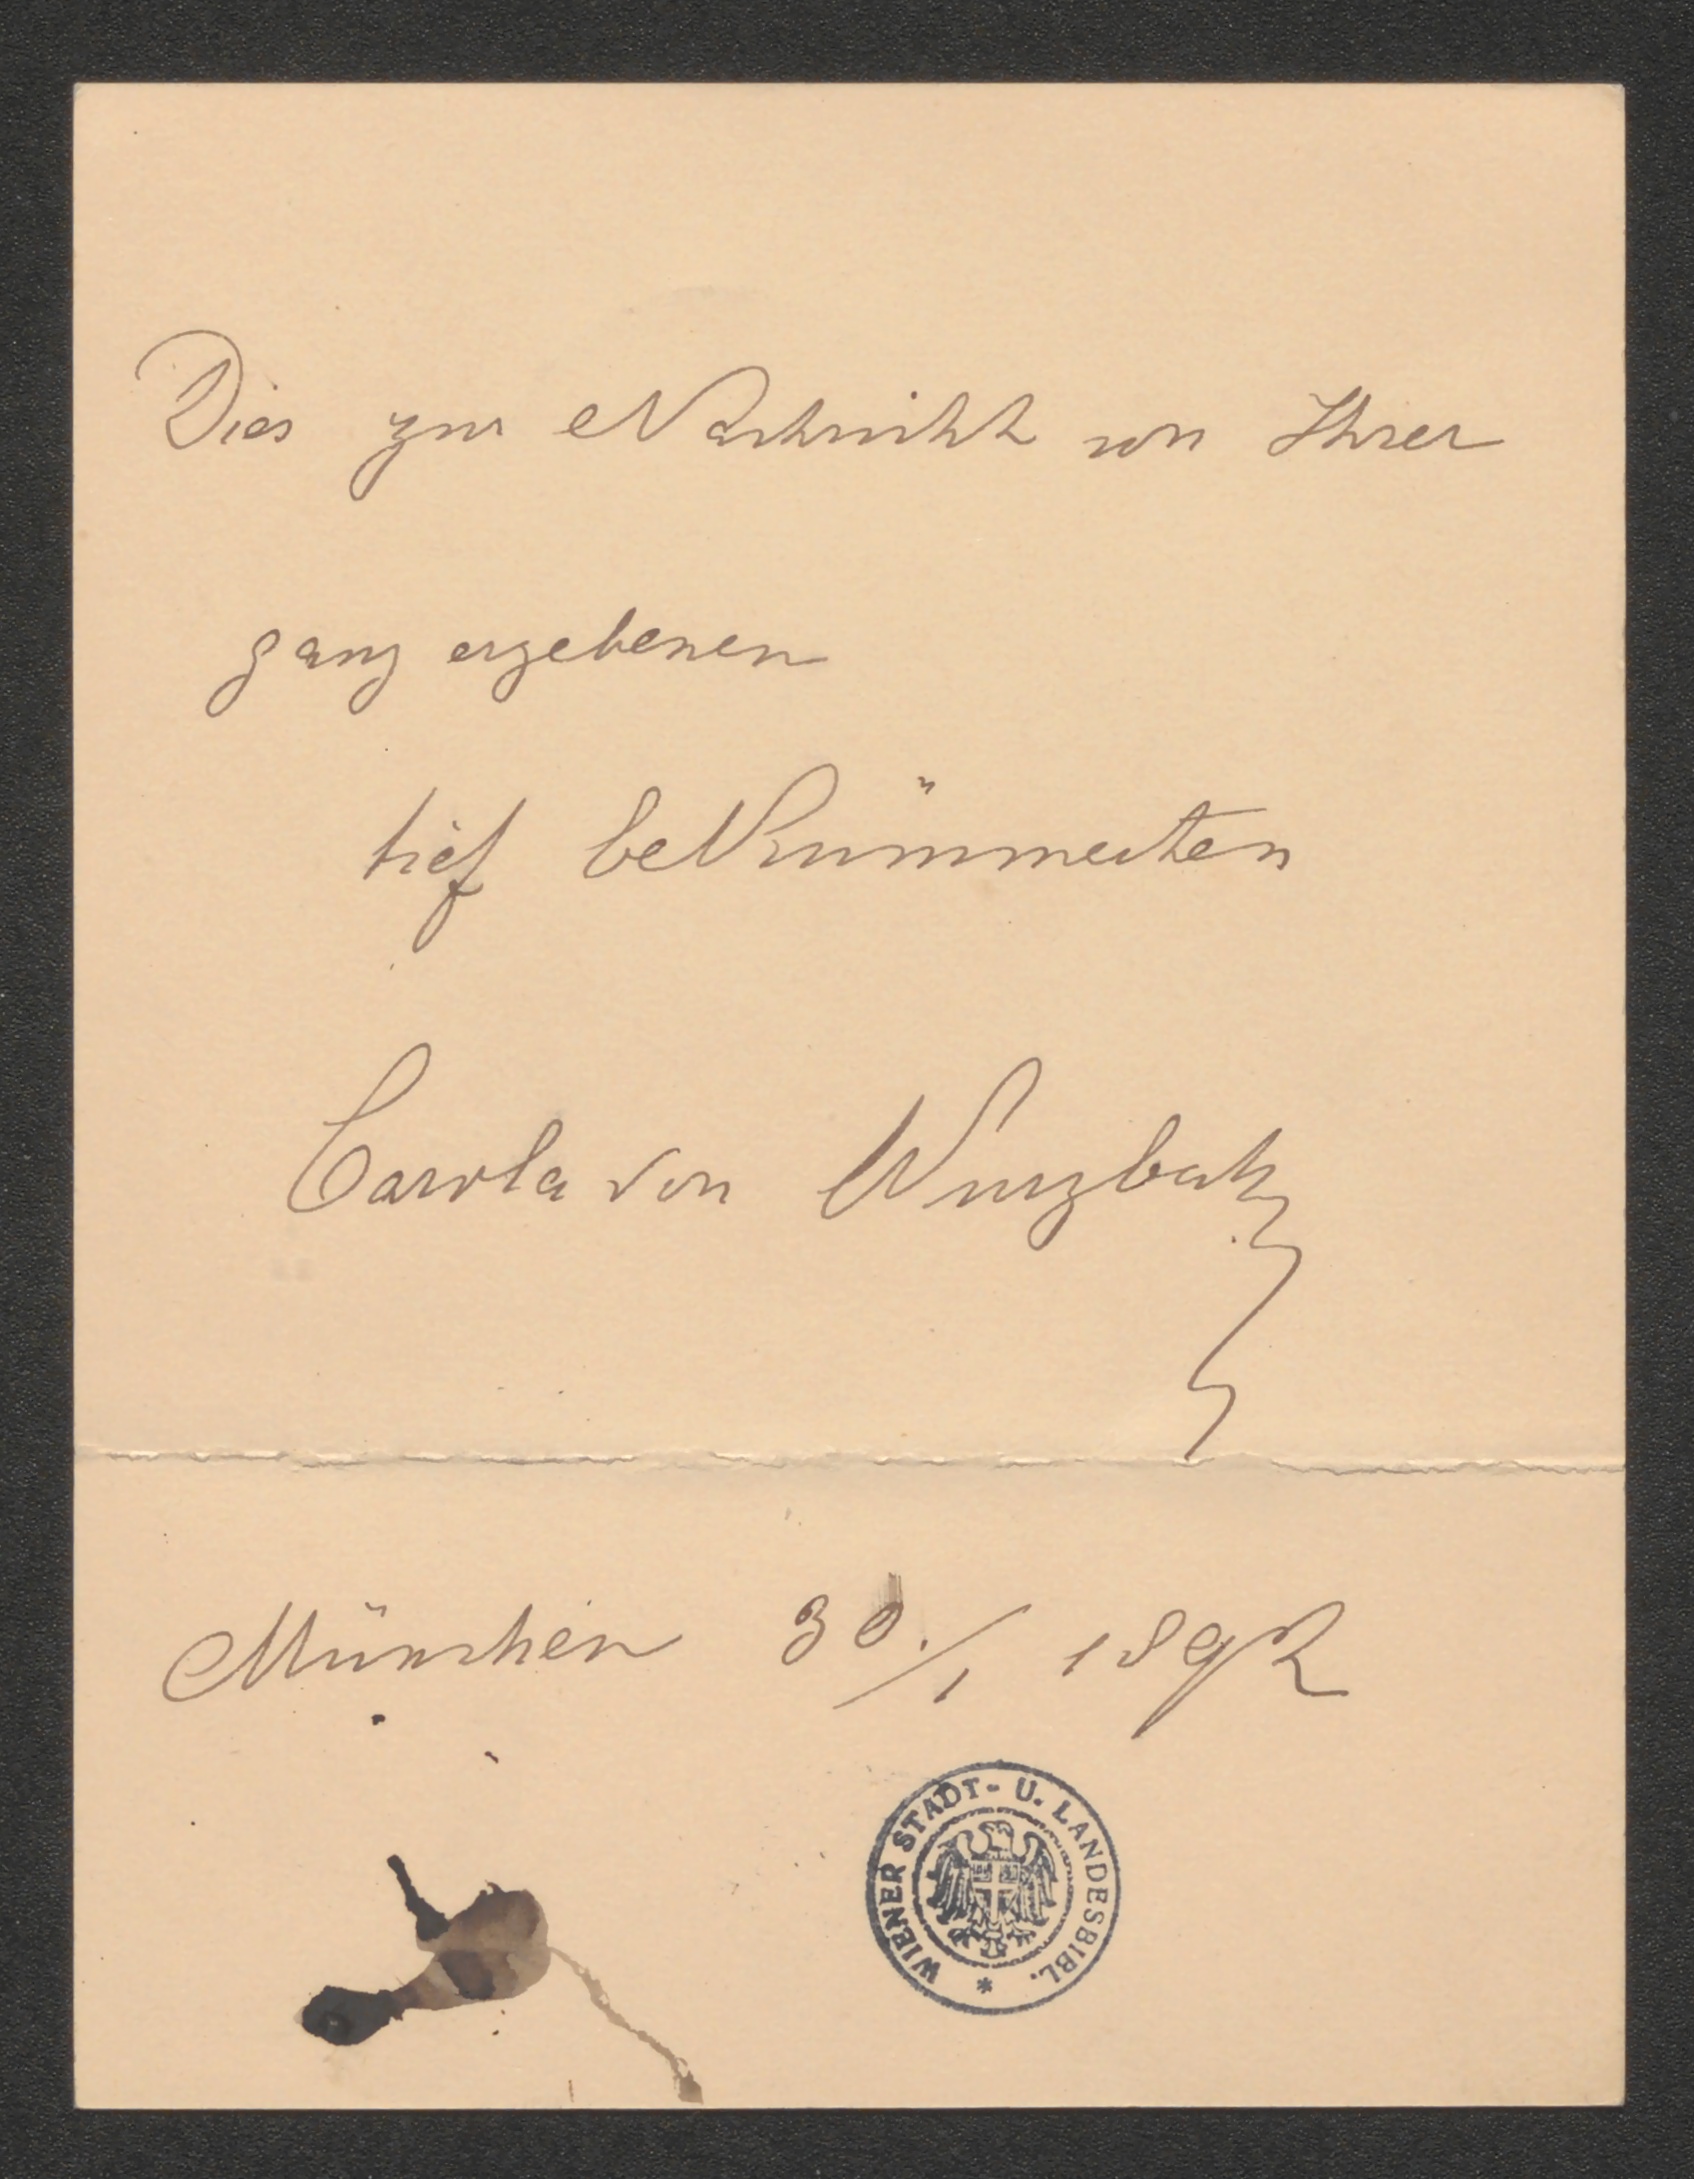 Dies zur Nachricht von Ihrer
ganz ergebenen
tief bekümmerten
Carola von Wurzbach
München 30./1 1892
WIENER STADT- U. LANDESBIBL. *